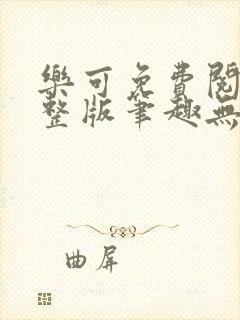 樂可免費閱
整版筆趣無
曲屏